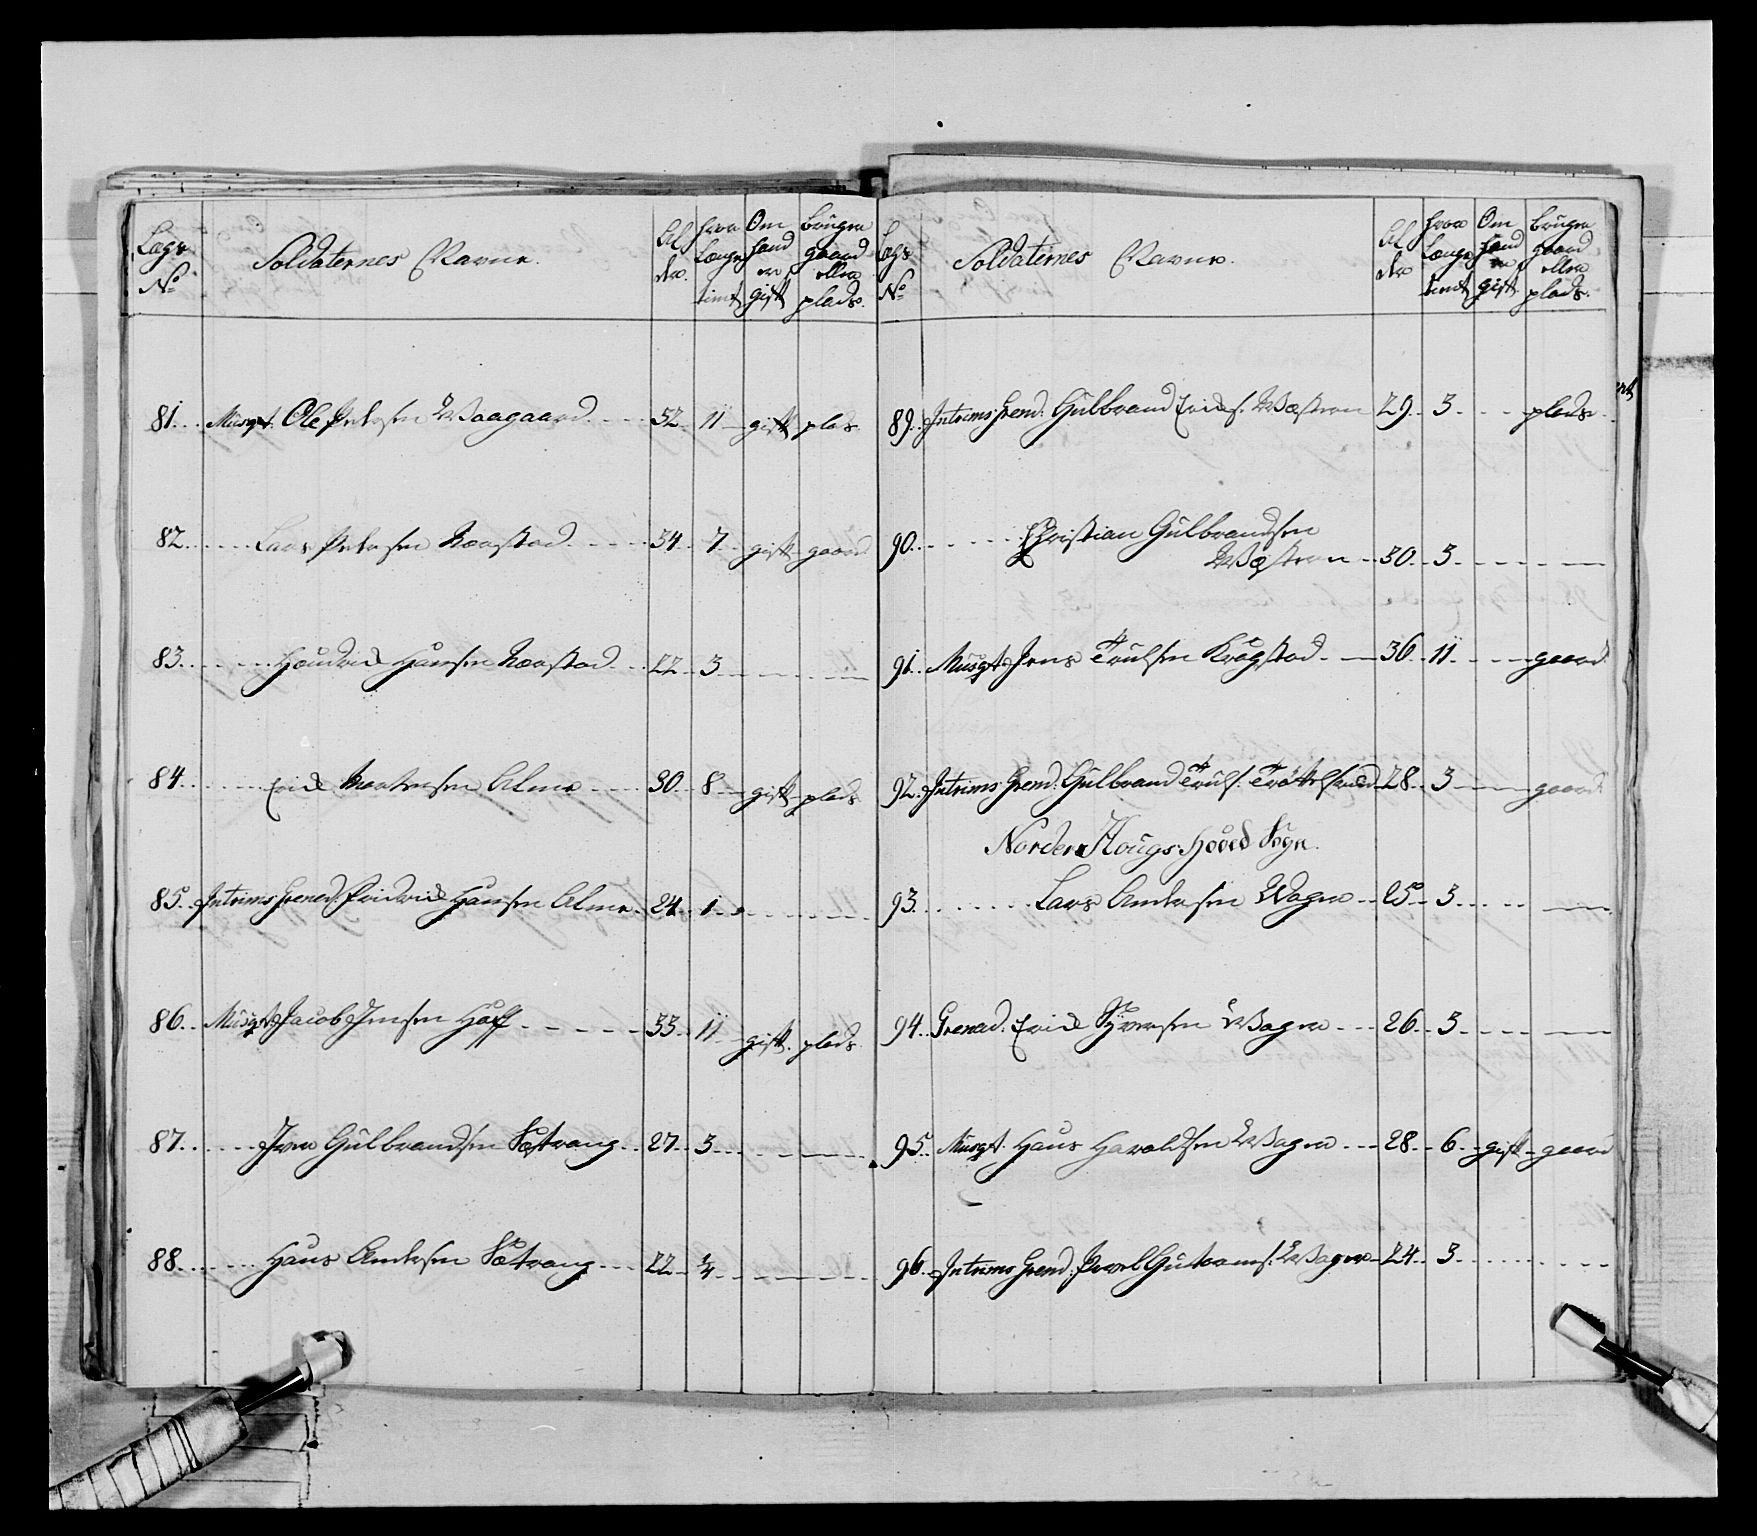 Lægs No Soldaternes Navne. Al der. hvor Længe tient Om hand er gift Bruger gaard eller plads.
81. Musqt. Ole Pedersen Waagaard 32 11 gift plas
82 Lars Pedersen Naastad 34 7 gift gaard
83 Hendrich Hansen Naastad 22 3
84 Erich Mortensen Alme 30 8 gift plads
85. Intrims Grened. Fridrich Hansen Alme 24 1
86. Musqt. Jacob Jensen Hoff 33 11 gift plads
87. Iver Gulbrandsen Sætrang 27 3
88. Hans Andersen Sætrang 22 3/4
Lægs No Soldaternes Navne. Al der hvor Længe tient Om hand er gift Bruger gaard eller plads.
89. Intrims Grend. Gulbrand Erichs. Wæstern 29 3 plads
90. Christian Gulbrandsen
Wæstern 30 3
91. Musqt. Jens Trulsen Krogstad 36 11 gaard
92. Intrims Grend. Gulbrand Truls. 28 3 gaard
Norder Hougs Hoved Sogn.
93. Lars Andersen Wager 25 3
94. Grenad. Erich Syversen Wager 26 3
95. Musqt. Hans Haraldsen Wager 28 6 gift gaard
96. Intrims Grend. Povel Guttorms. Wager 24 3